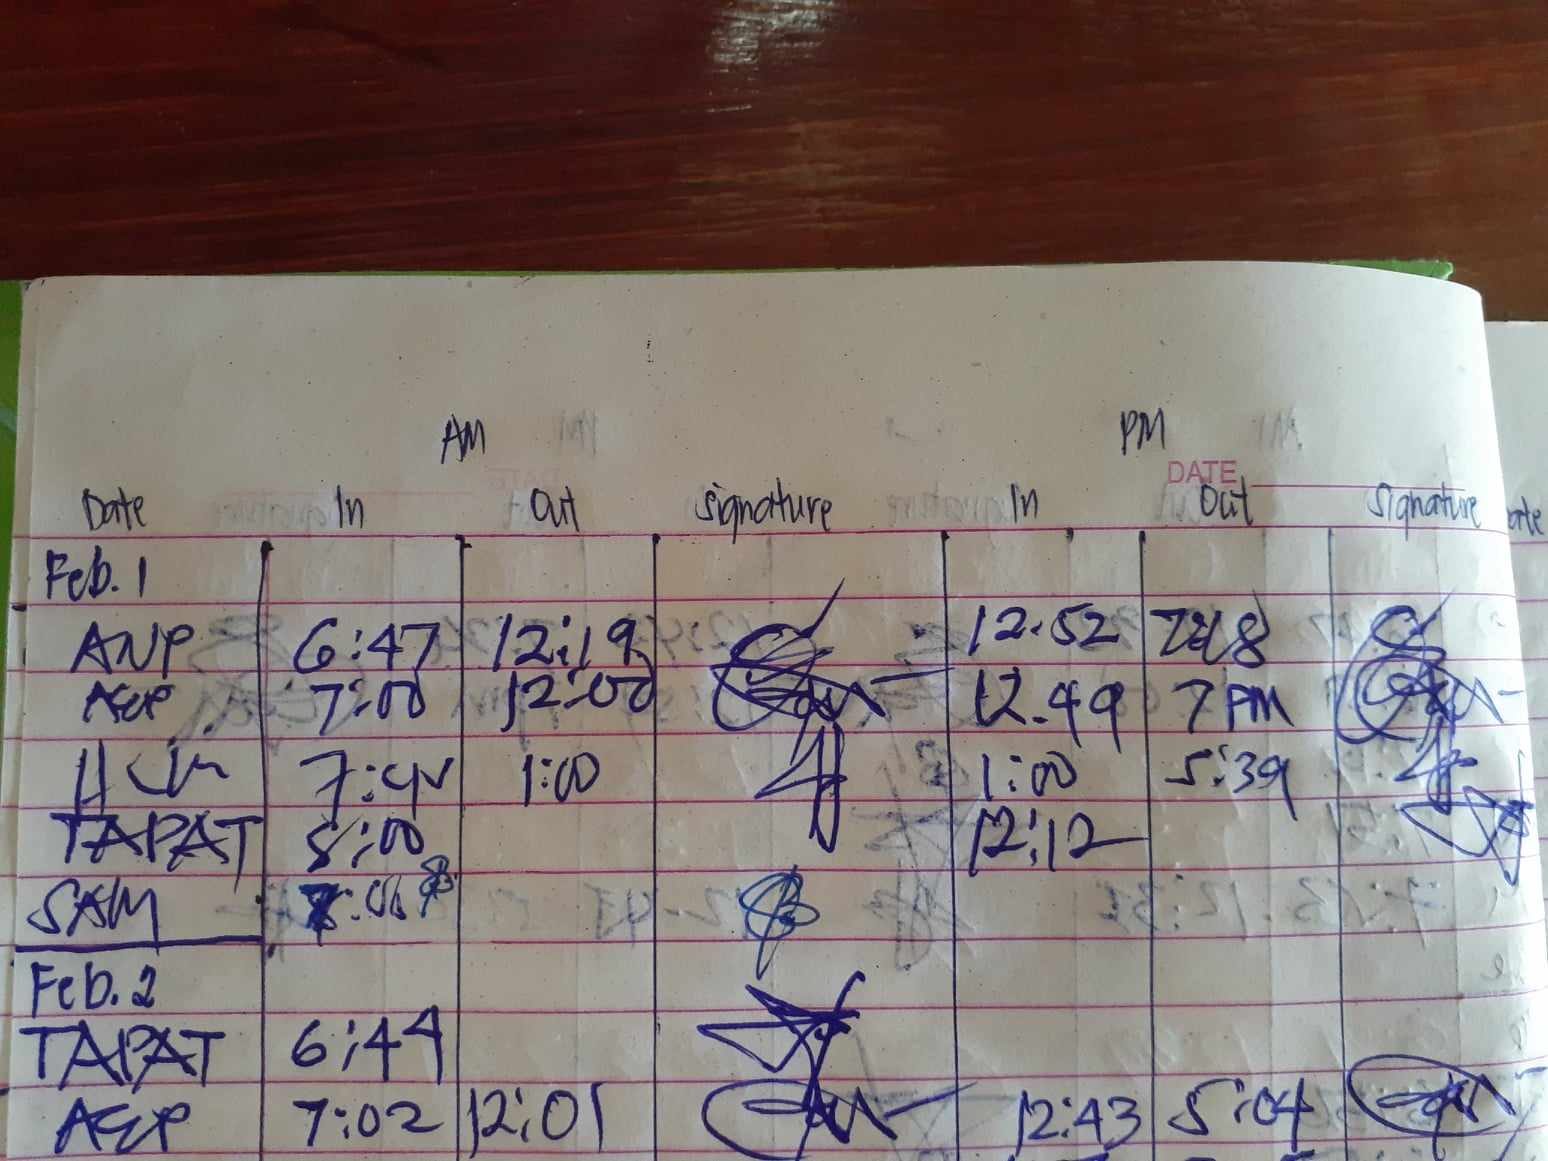 AM PM
DATE
Date In Out Signature In Out Signature
Feb. 1
ANP 6:47 12:19 12.52
AEP 7:00 12:00 12.49 7 PM
1:00 1:00 5:39
TAPAT 12:12
SAM
Feb. 2
TAPAT 6:44
AEP 7:02 12:01 12:43 5:04